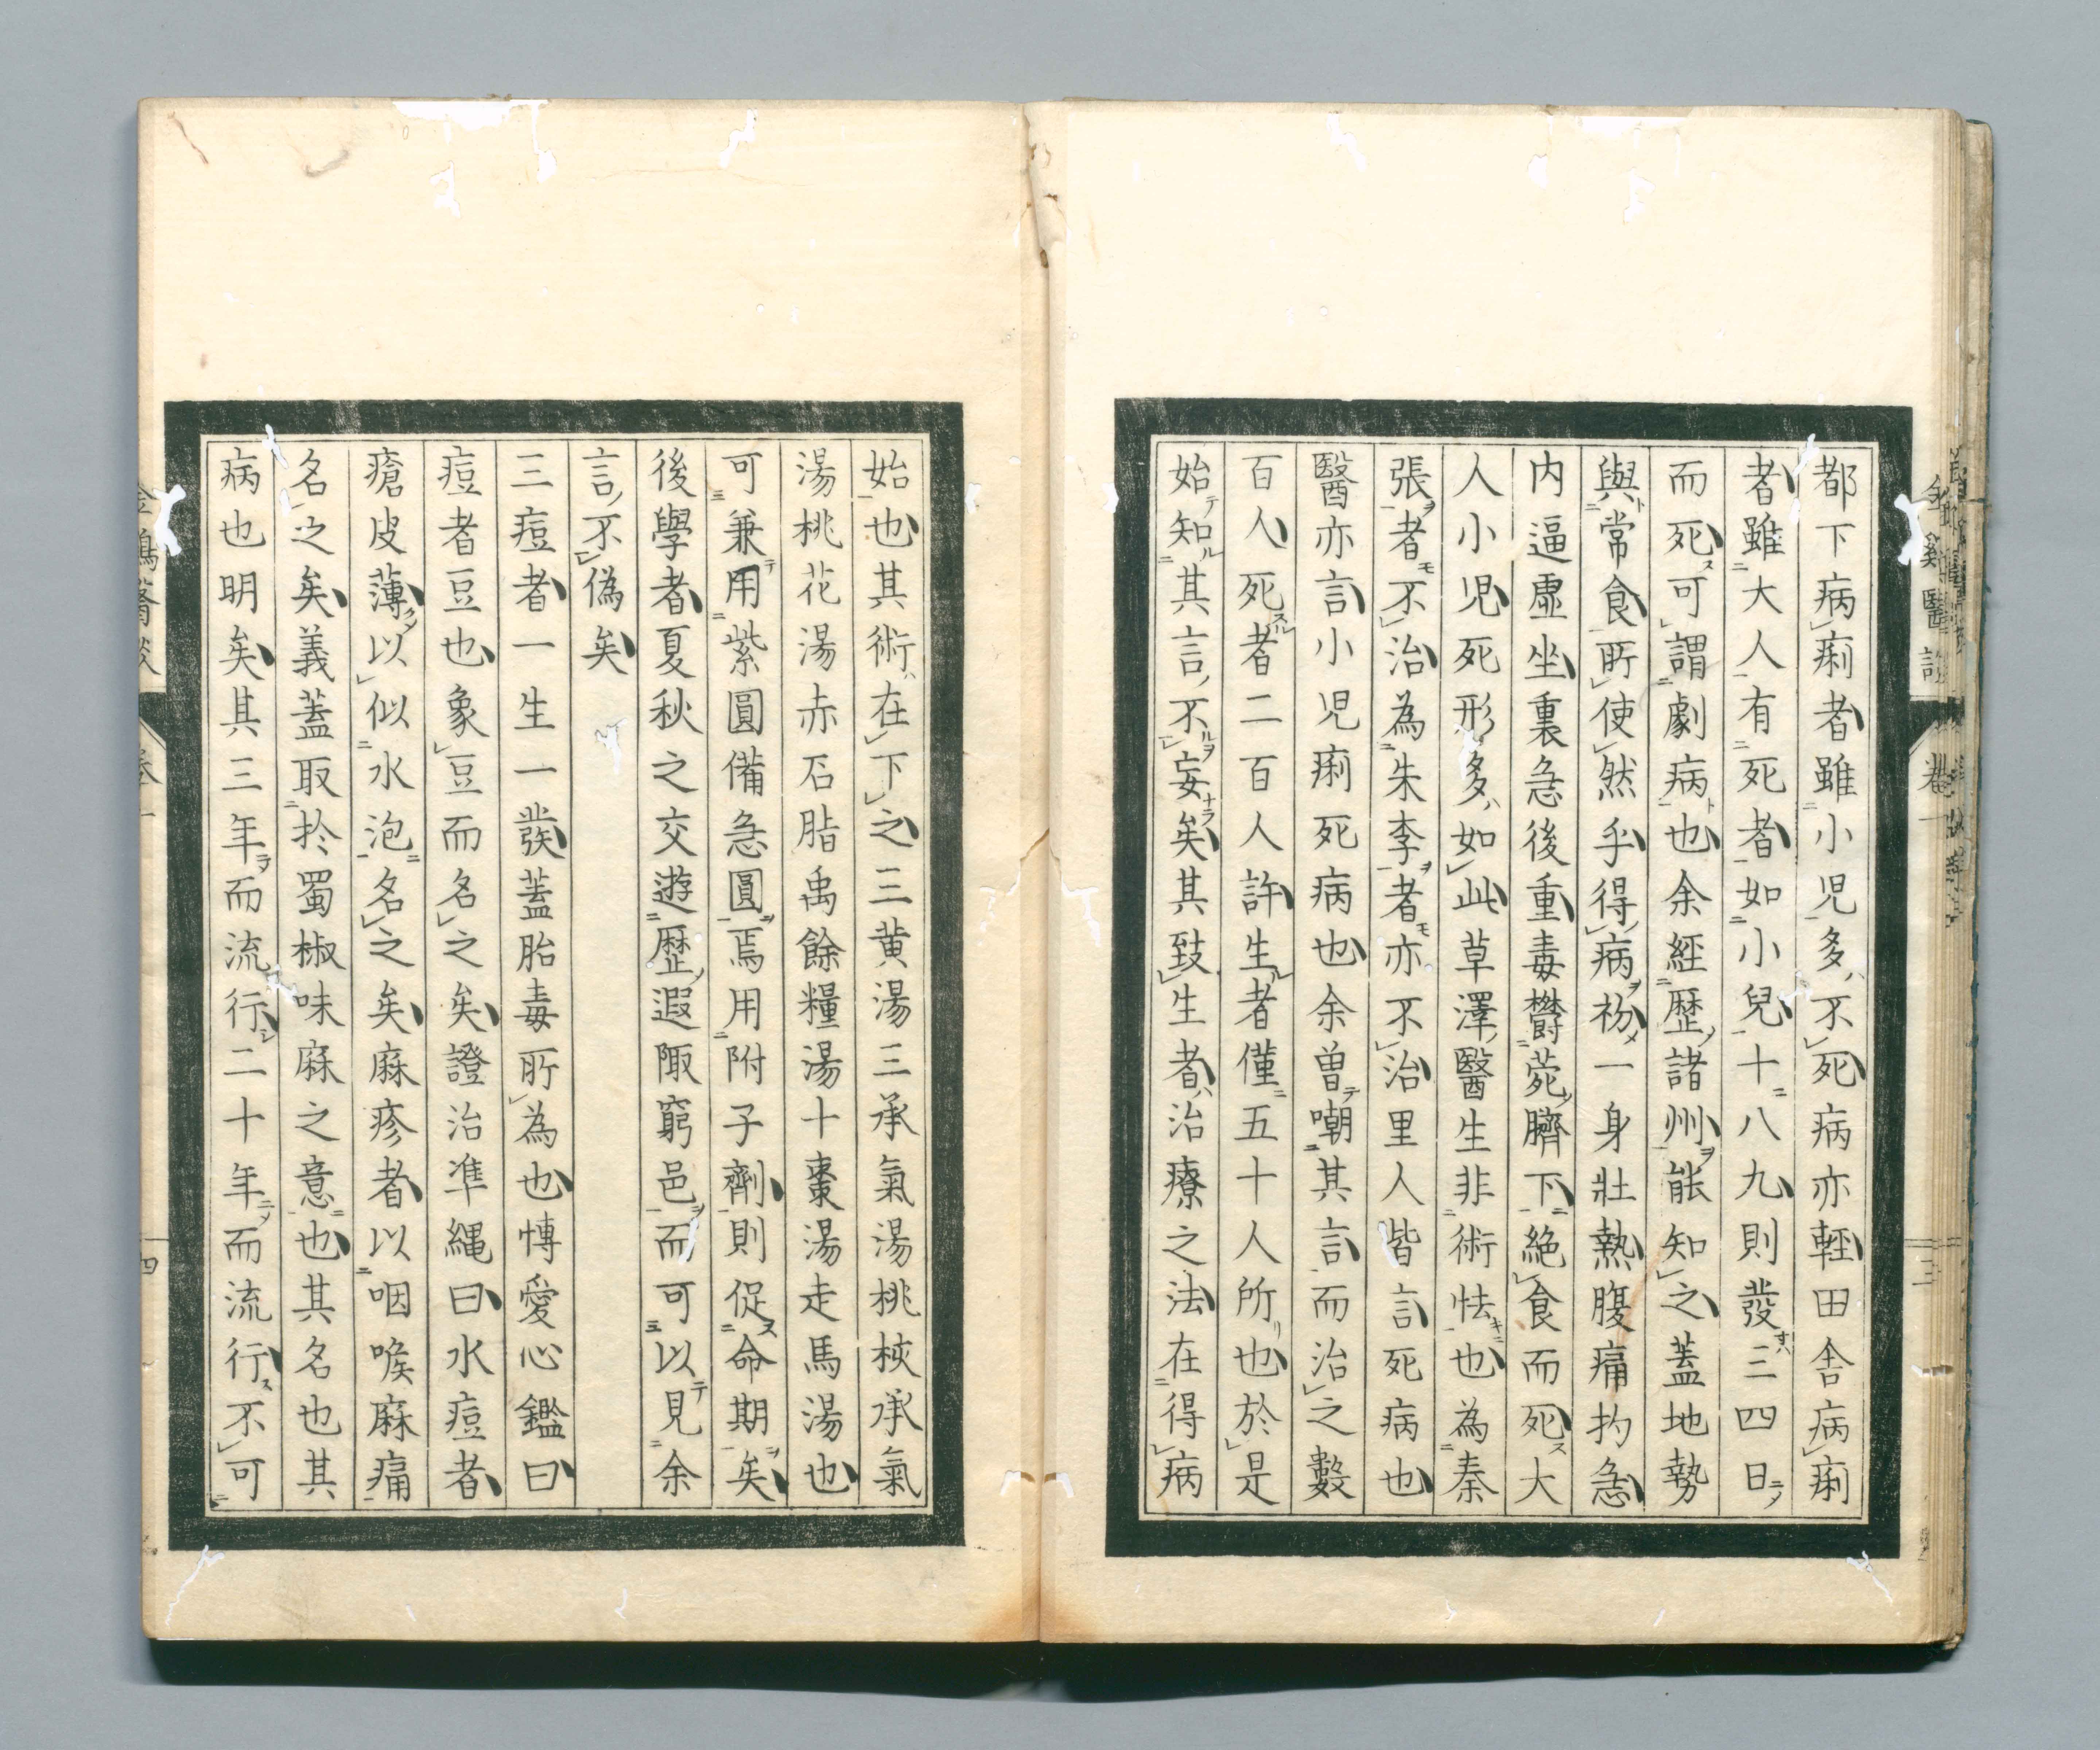 都下病痢者雖小児多不死病亦軽田舎病痢
者雖大人有死者如小兒十八九則發三四日
而死可謂劇病也余經歴諸州能知之蓋地勢
與常食所使然乎得病初一身壯熱腹痛拘急
内逼虚坐裏急後重毒欝薨臍下絶食而死大
人小児死形多如此草澤醫生非術怯也為秦
張者不治為朱李者亦不治里人皆言死病也
醫亦言小児痢死病也余曽嘲其言而治之數
百人死者二百人許生者僅五十人所也於是
始知其言不妄矣其致生者治療之法在得病
始也其術在下之三黄湯三承氣湯桃核承氣
湯桃花湯赤石脂禹餘糧湯十棗湯走馬湯也
可兼用紫圓備急圓焉用附子劑則促命期矣
後學者夏秋之交遊歴遐陬窮邑而可以見余
言不偽矣
三痘者一生一發蓋胎毒所為也愽愛心鑑曰
痘者豆也象豆而名之矣證治準縄曰水痘者
瘡皮薄以似水泡名之矣麻疹者以咽喉麻痛
名之矣義蓋取於蜀椒味麻之意也其名也其
病也明矣其三年而流行二十年而流行不可
金鶏醫談
卷一
三
四